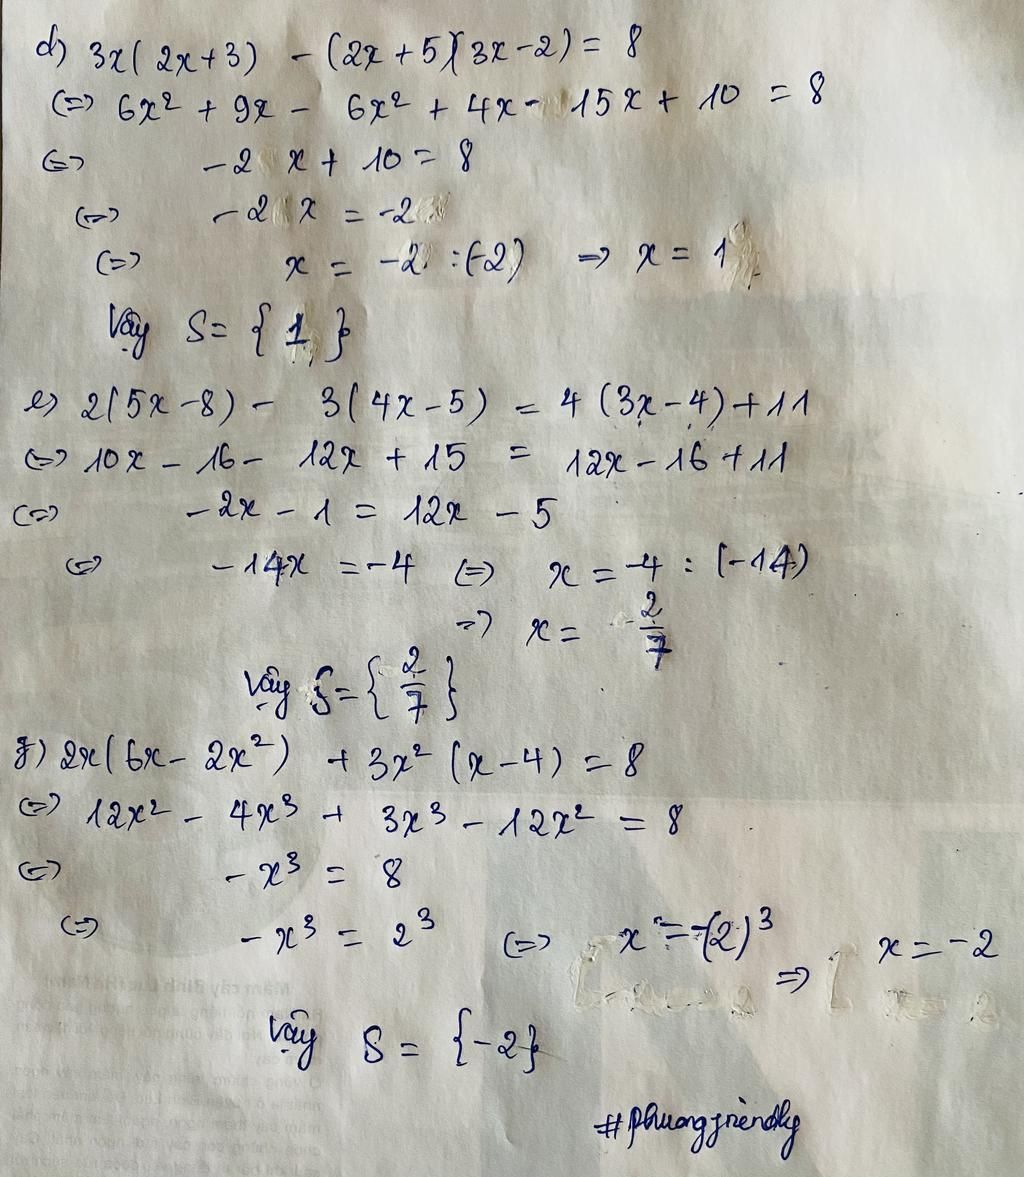 d) 3x(2x+3) - (2x+5)(3x-2) = 8
(=) 6x² + 9x - 6x² + 4x - 15x + 10 = 8
(=) -2x + 10 = 8
(=) -2x = -2
(=) x = -2 : (-2) => x = 1
Vậy S = {1}
e) 2(5x-8) - 3(4x-5) = 4(3x-4)+11
(=) 10x - 16 - 12x + 15 = 12x - 16 + 11
(=) -2x - 1 = 12x - 5
(=) -14x = -4 (=) x = -4 : (-14)
=> x = 2/7
Vậy S = {2/7}
f) 2x(6x - 2x²) + 3x²(x-4) = 8
(=) 12x² - 4x³ + 3x³ - 12x² = 8
(=) -x³ = 8
(=) -x³ = 2³ (=) x³ = -(2)³ => x = -2
Vậy S = {-2}
#phuongfriendly